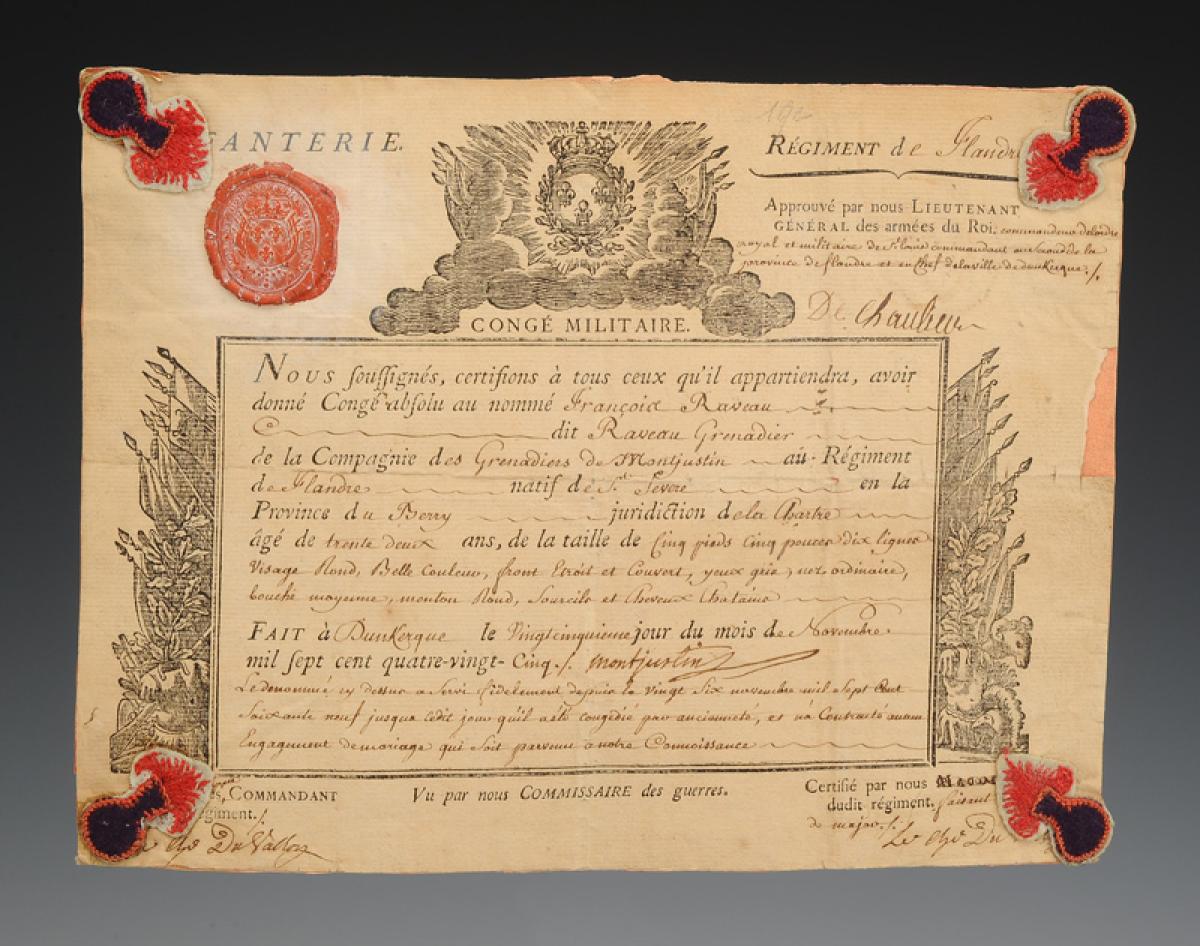 ANTERIE.
192
RÉGIMENT de Flandre
Approuvé par nous LIEUTENANT
GÉNÉRAL des armées du Roi. commandeur de lordre
royal et militaire de St. Louis commandant au de la
province de flandre et en chef de la ville de dunkerque ./.
De Chaulieu
CONGÉ MILITAIRE.
NOUS soussignés, certifions à tous ceux qu'il appartiendra, avoir
donné Congé absolu au nommé François Raveau
dit Raveau Grenadier
de la Compagnie des Grenadiers de Montjustin au Régiment
de Flandre natif de St. Severe en la
Province du Berry juridiction de la Chartre
âgé de trente deux ans, de la taille de Cinq pieds Cinq pouces dix lignes
Visage Rond, Belle Couleur, front Etroit et Couvert, yeux gris, nez ordinaire,
bouche moyenne, menton Rond, Sourcils et Cheveux Chatains
FAIT à Dunkerque le Vingtcinquieme jour du mois de Novembre
mil sept cent quatre-vingt- Cinq ./. Montjustin
Le denommé cy dessus a Servi fidelement depuis le vingt Six novembre mil Sept Cent
Soixante neuf jusqua cedit jour qu'il a été congédié par ancienneté, et n'a Contracté aucun
Engagement de mariage qui Soit parvenu a notre Connoissance
s, COMMANDANT
égiment ./.
Du Vallon
Vu par nous COMMISSAIRE des guerres.
Certifié par nous MAJOR
dudit régiment. faisant
de major ./.
Le Du